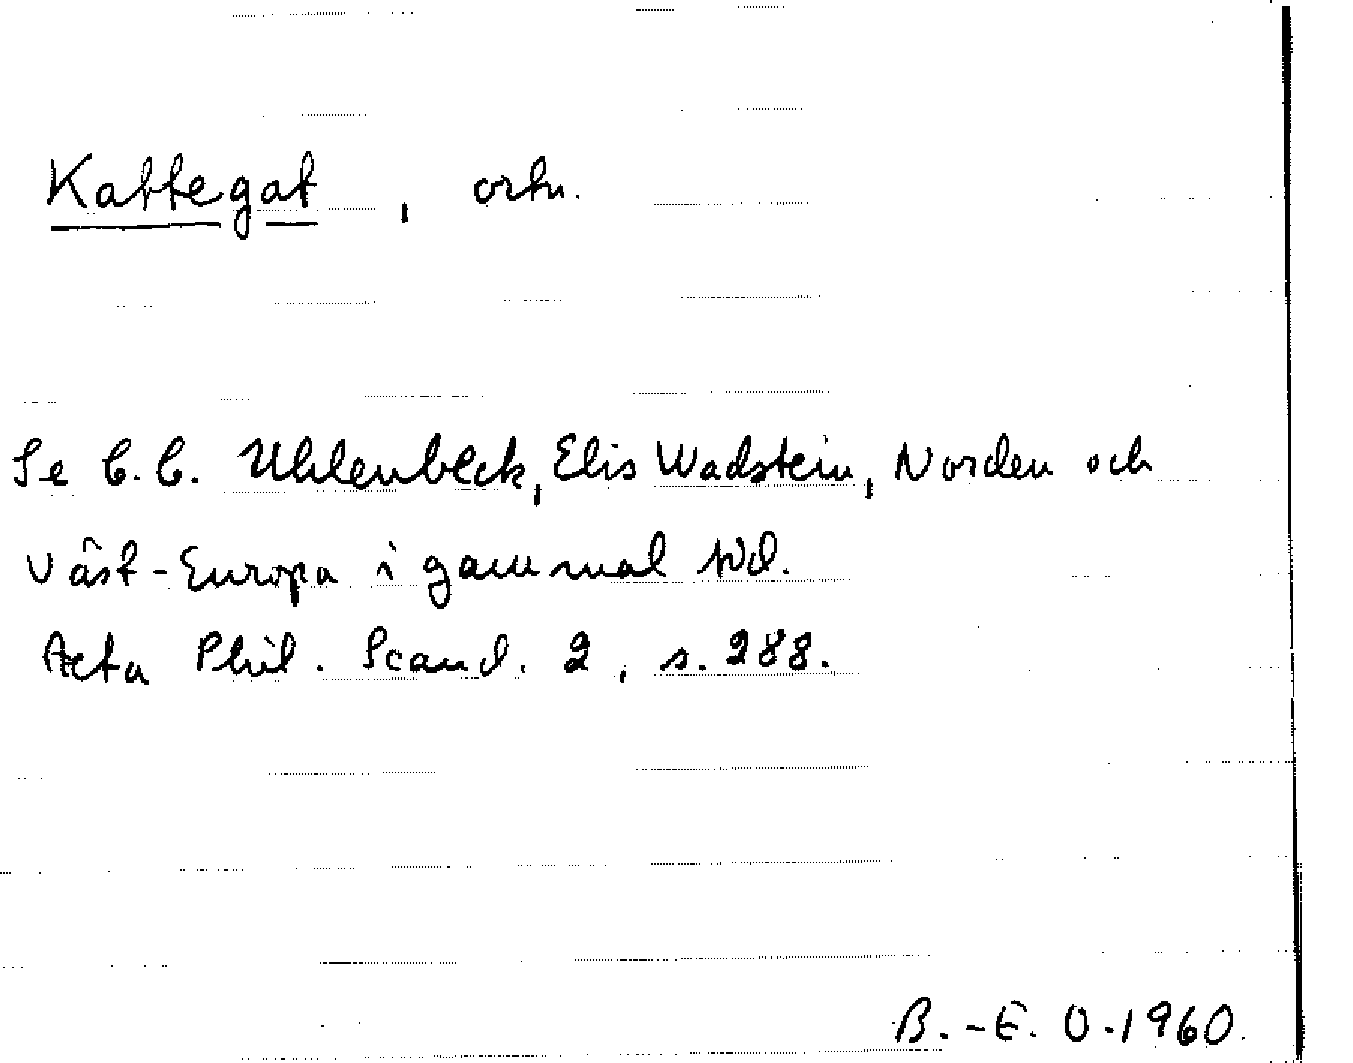 Kattegat, ortn.
Se C.C. Uhlenbeck, Elis Wadstein, Norden och
Väst-Europa i gammal tid.
Acta Phil. Scand. 2, s. 288.
B.-E. O. 1960.